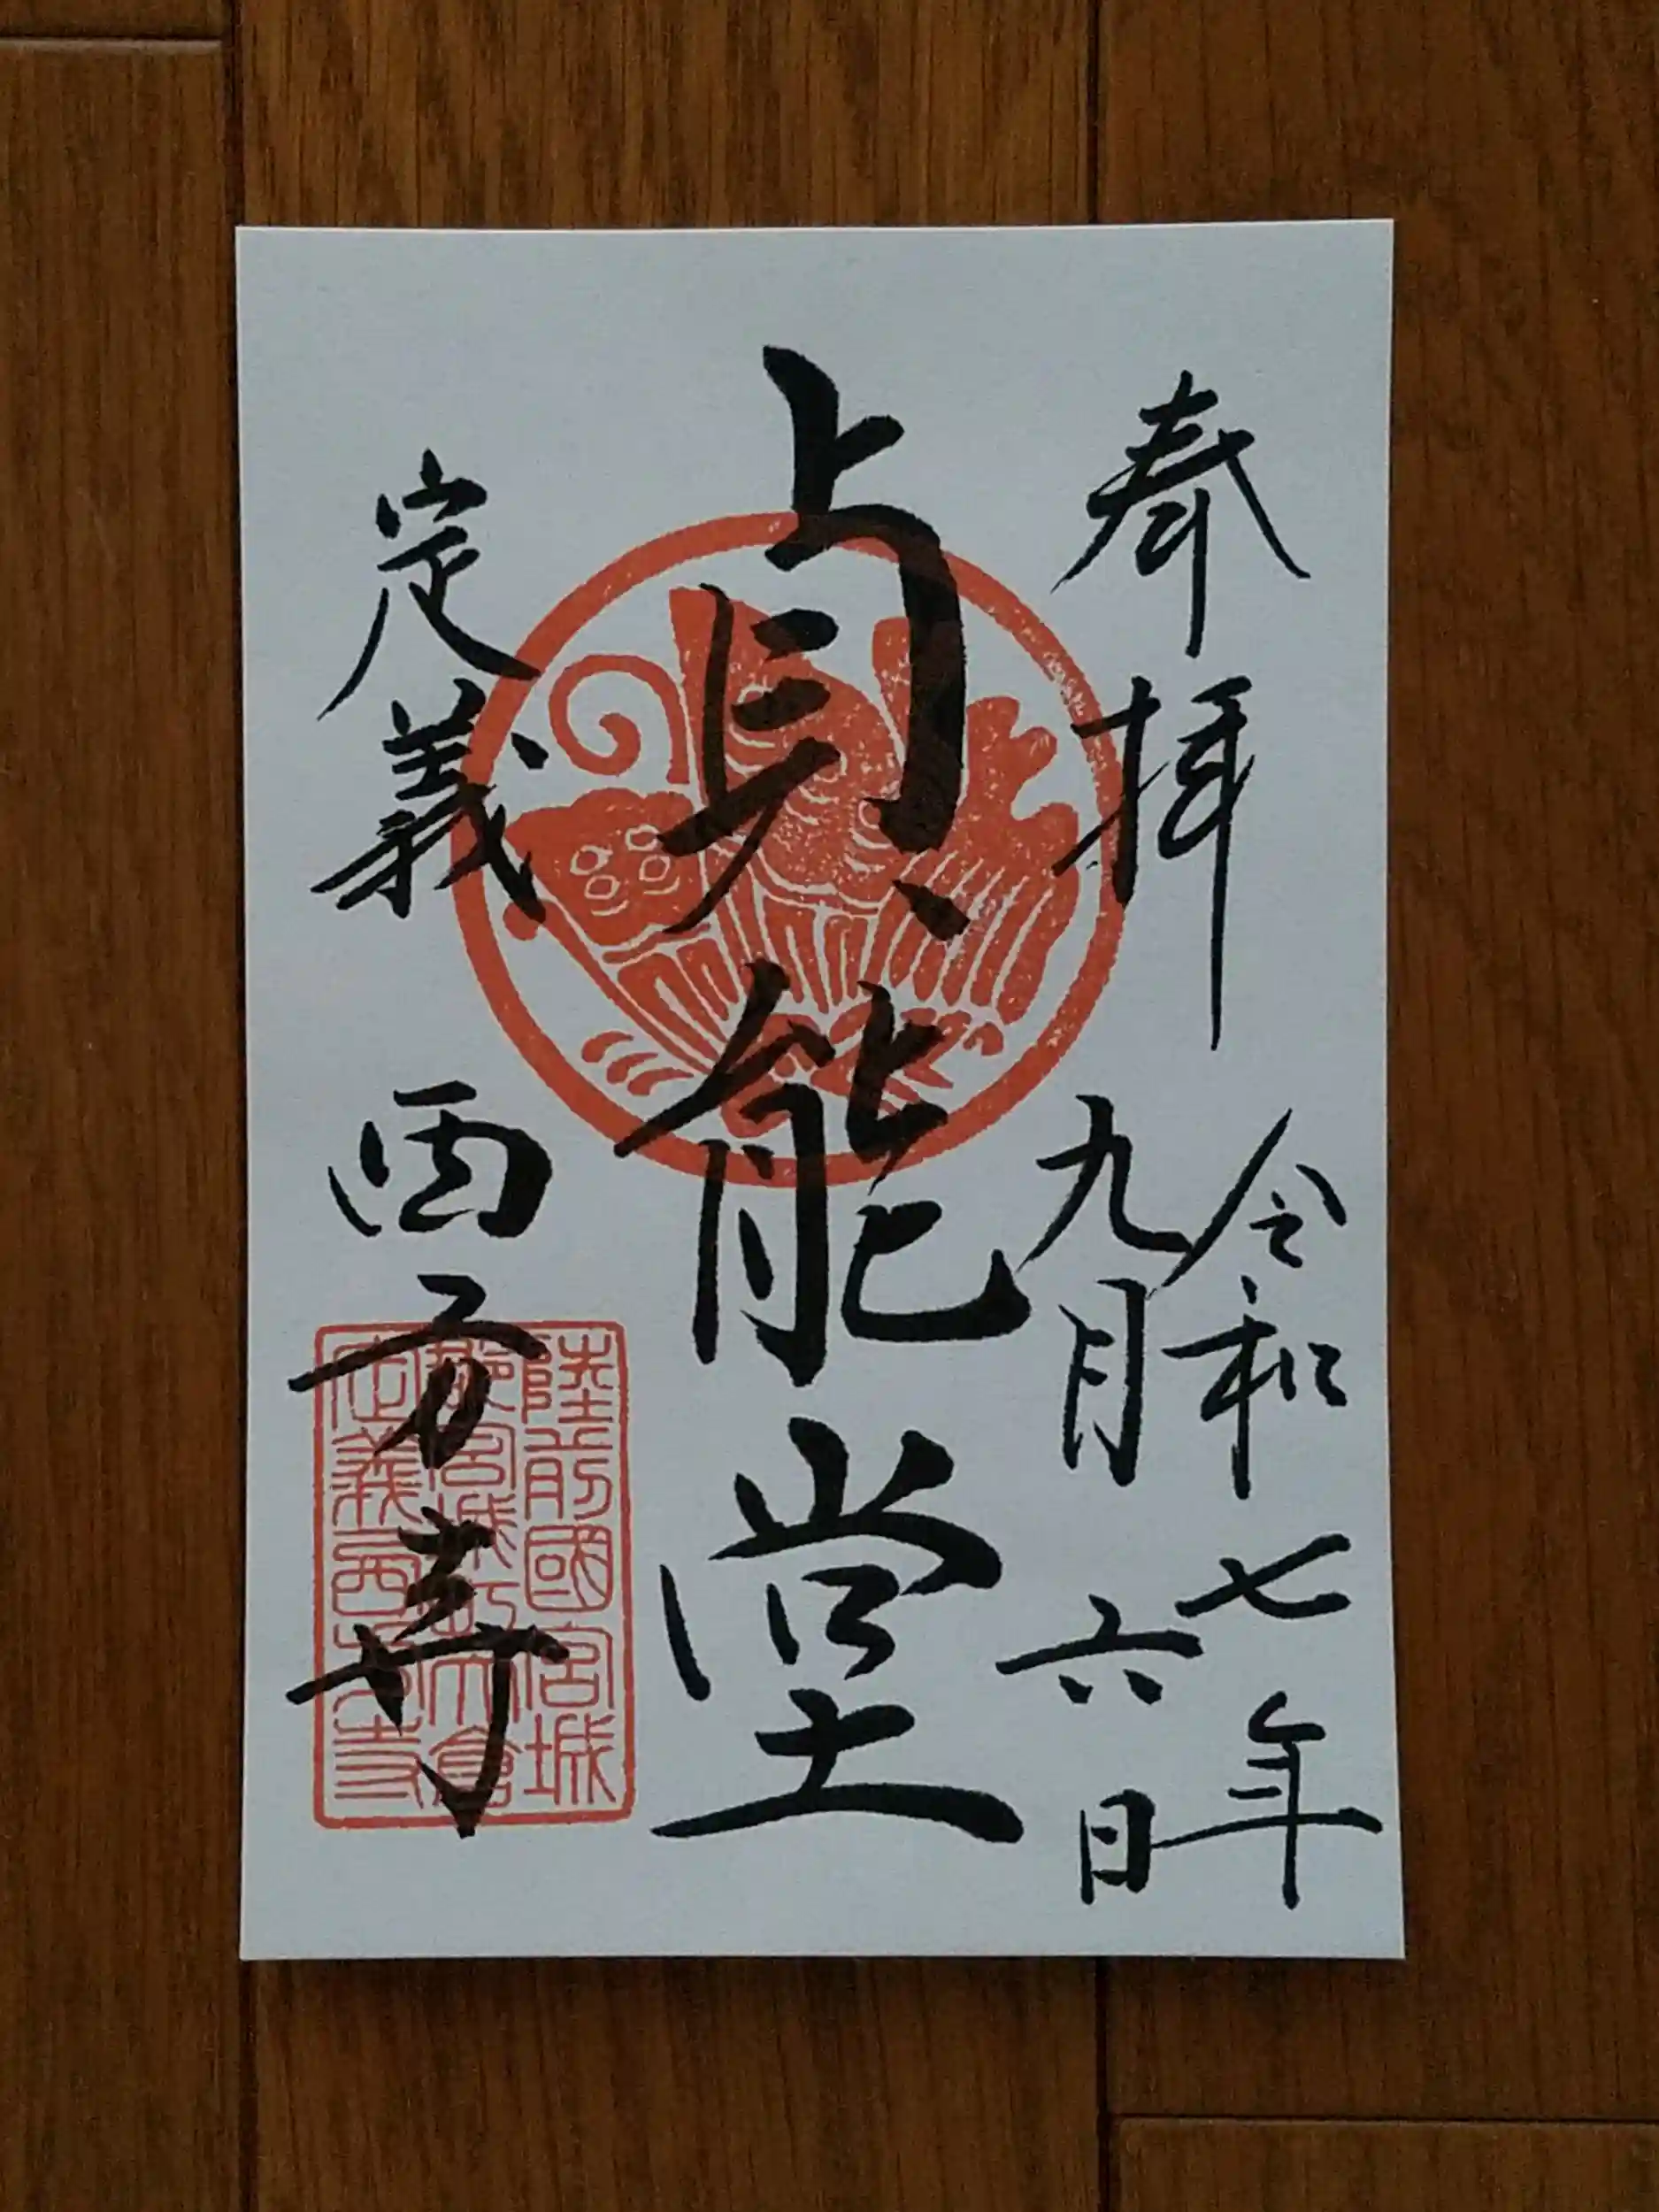 奉拝
令和七年
九月六日
貞能堂
定義 西方寺
陸前國宮城
郡宮城町大倉
定義西方寺